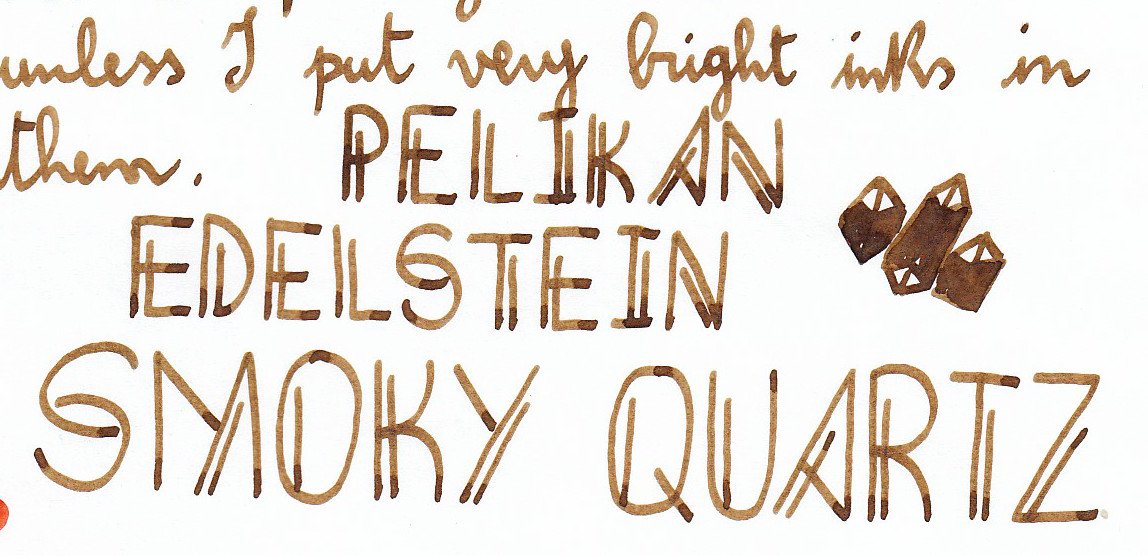 unless I put very bright inks in
them. PELIKAN
EDELSTEIN
SMOKY QUARTZ.